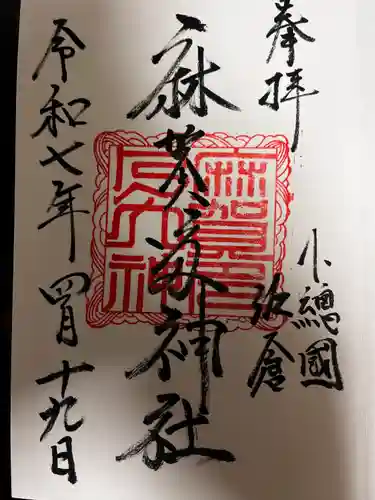 奉拝
下總國
佐倉
麻賀多神社
麻賀多
大神
令和七年四月十九日